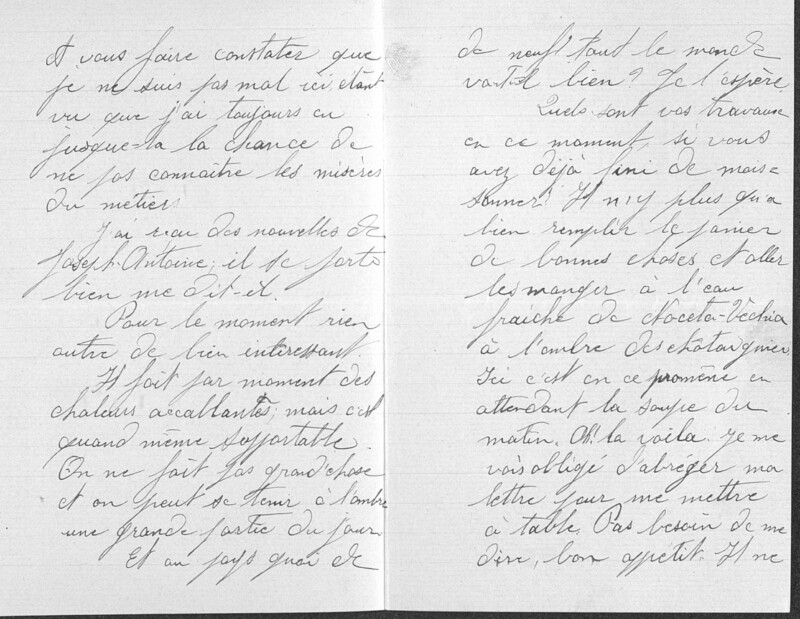 Et vous faire constater que
je ne suis pas mal ici, étant
vu que j'ai toujours eu
jusque-la la chance de
ne pas connaître les misères
du métier.
J'ai reçu des nouvelles de
Joseph-Antoine; il se porte
bien me dit-il.
Pour le moment rien
autre de bien interessant.
Il fait par moment des
chaleurs accablantes; mais c'est
quand même supportable.
On ne fait pas grand'chose
et on peut se tenir à l'ombre
une grande partie du jour.
Et au pays quoi de
de neuf? tout le monde
va-t-il bien? Je l'espère.
Quels sont vos travaux
en ce moment, si vous
avez déjà fini de mois=
sonner? Il n'y plus qu'a
bien remplir le panier
de bonnes choses et aller
les manger à l'eau
fraîche de Noceta-Vechia
à l'ombre des châtaigniers.
Ici c'est on ce promène en
attendant la soupe du
matin. Ah! la voila. Je me
vois obligé d'abréger ma
lettre pour me mettre
à table. Pas besoin de me
dire, bon appetit. Il ne